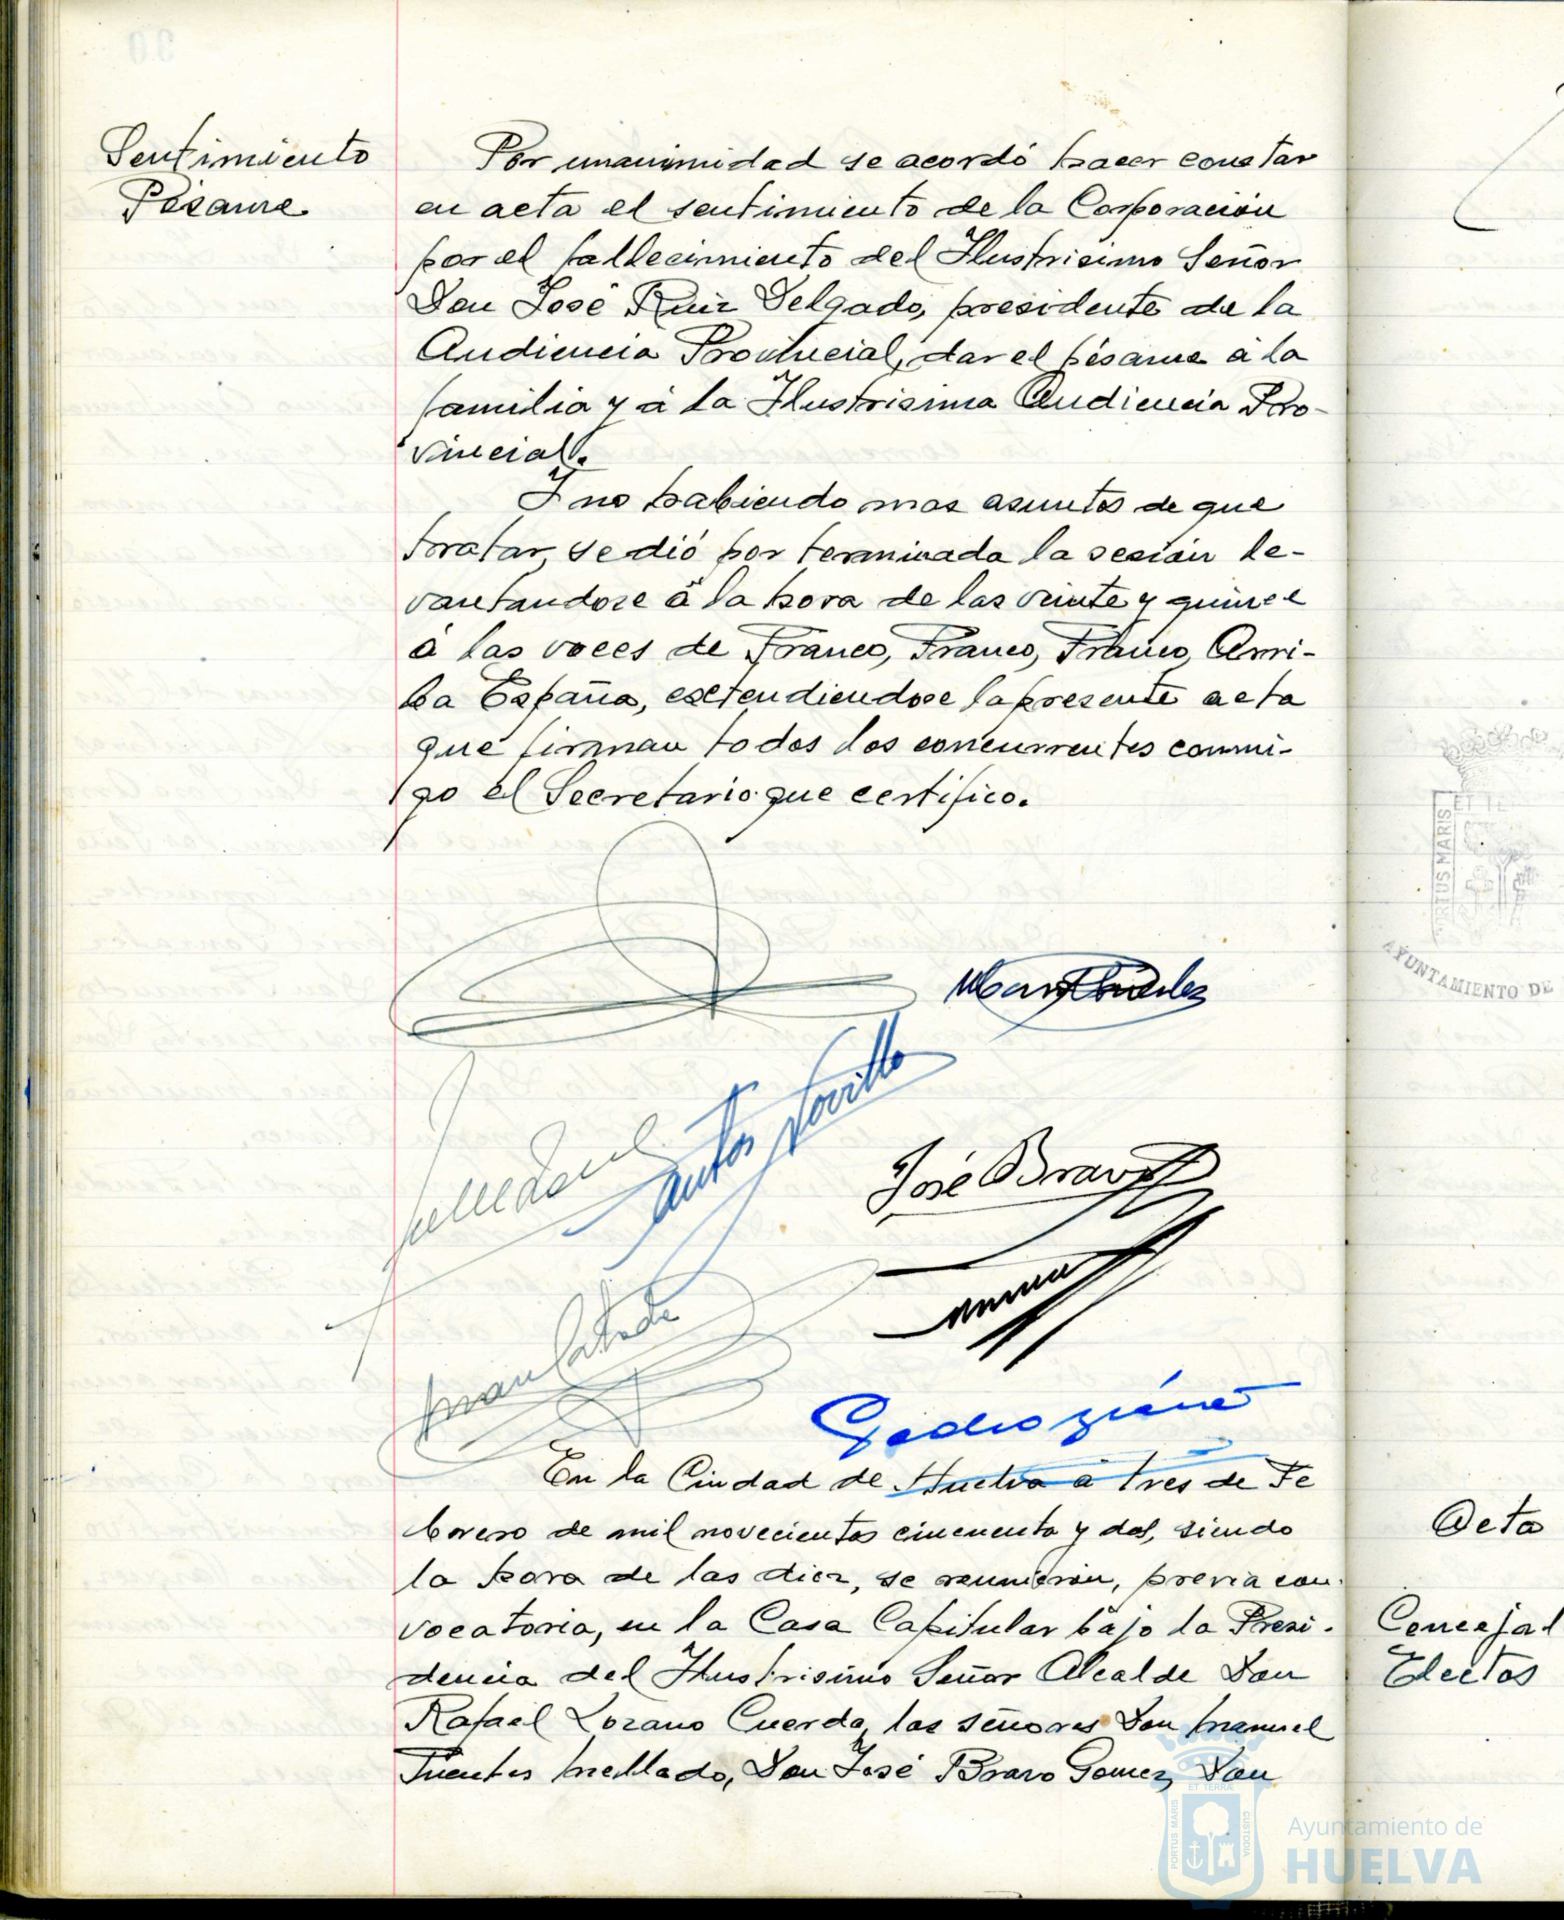 Sentimiento
Pésame
Por unanimidad se acordó hacer constar
en acta el sentimiento de la Corporación
por el fallecimiento del Ilustrisimo Señor
Don José Ruiz Delgado, presidente de la
Audiencia Provincial, dar el pésame á la
familia y á la Ilustrisima Audiencia Pro-
vincial.
Y no habiendo mas asuntos de que
tratar, se dió por terminada la sesión le-
vantandose á la hora de las veinte y quince
á las voces de Franco, Franco, Franco, Arri-
ba España, extendiendose la presente acta
que firman todos los concurrentes conmi-
go el Secretario que certifico.
José Bravo
En la Ciudad de Huelva á tres de Fe
brero de mil novecientos cincuenta y dos, siendo
la hora de las diez, se reunierón, previa con-
vocatoria, en la Casa Capitular bajo la Presi-
dencia del Ilustrisimo Señor Alcalde Don
Rafael Lozano Cuerda, los señores Don Manuel
Fuentes Mellado, Don José Bravo Gomez, Don
Acta
Concejal
Electos
PORTUS MARIS
ET TE
AYUNTAMIENTO DE
PORTUS MARIS
ET TERRÆ
CUSTODIA
Ayuntamiento de
HUELVA